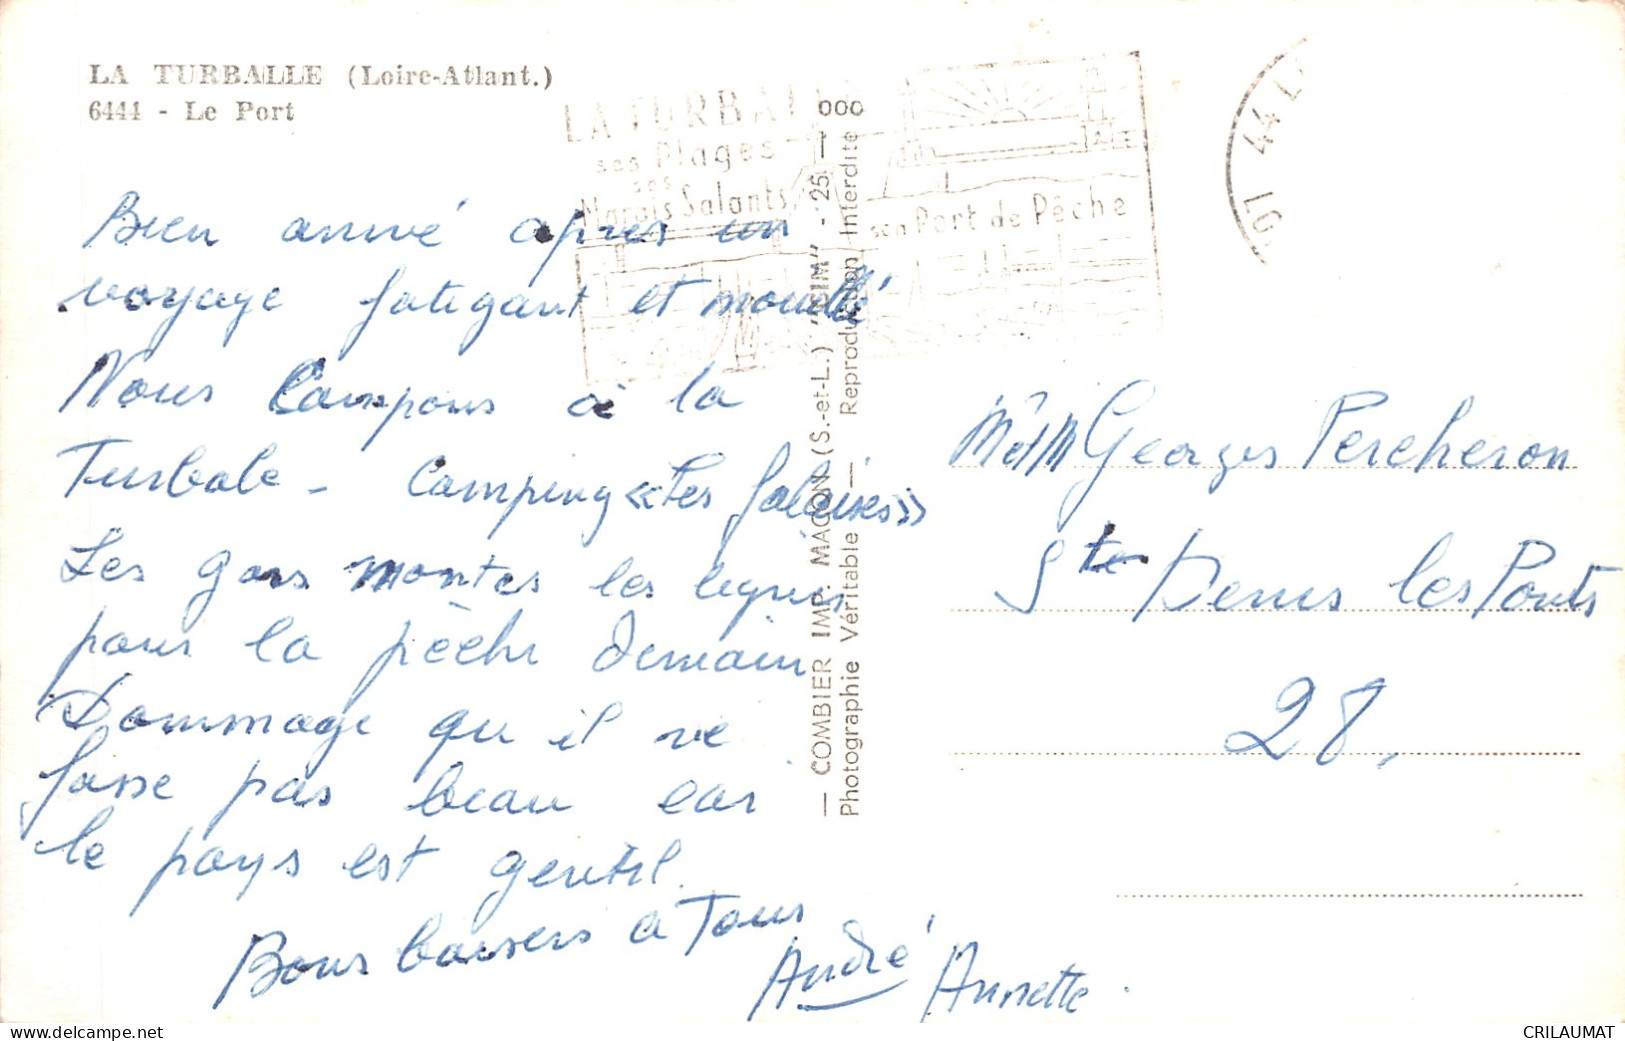 LA TURBALLE (Loire-Atlant.)
6444 - Le Port
LA TURBALLE
ses Plages
ses
Marais Salants
son Port de Pêche
44 L
Bien arrivé après un
voyage fatigant et mouillé
Nous Campons à la
Turbale - Camping «Les falaises»
Les gars montes les lignes
pour la pêche demain
Dommage qu il ne
fasse pas beau car
le pays est gentil.
Bons baisers a Tous
André Annette.
— COMBIER IMP. MACON (S.-et-L.) "CIM" - 25 — 000
Photographie Véritable — Reproduction Interdite
M et M Georges Percheron
Ste Denis les Ponts
28.
www.delcampe.net
CRILAUMAT